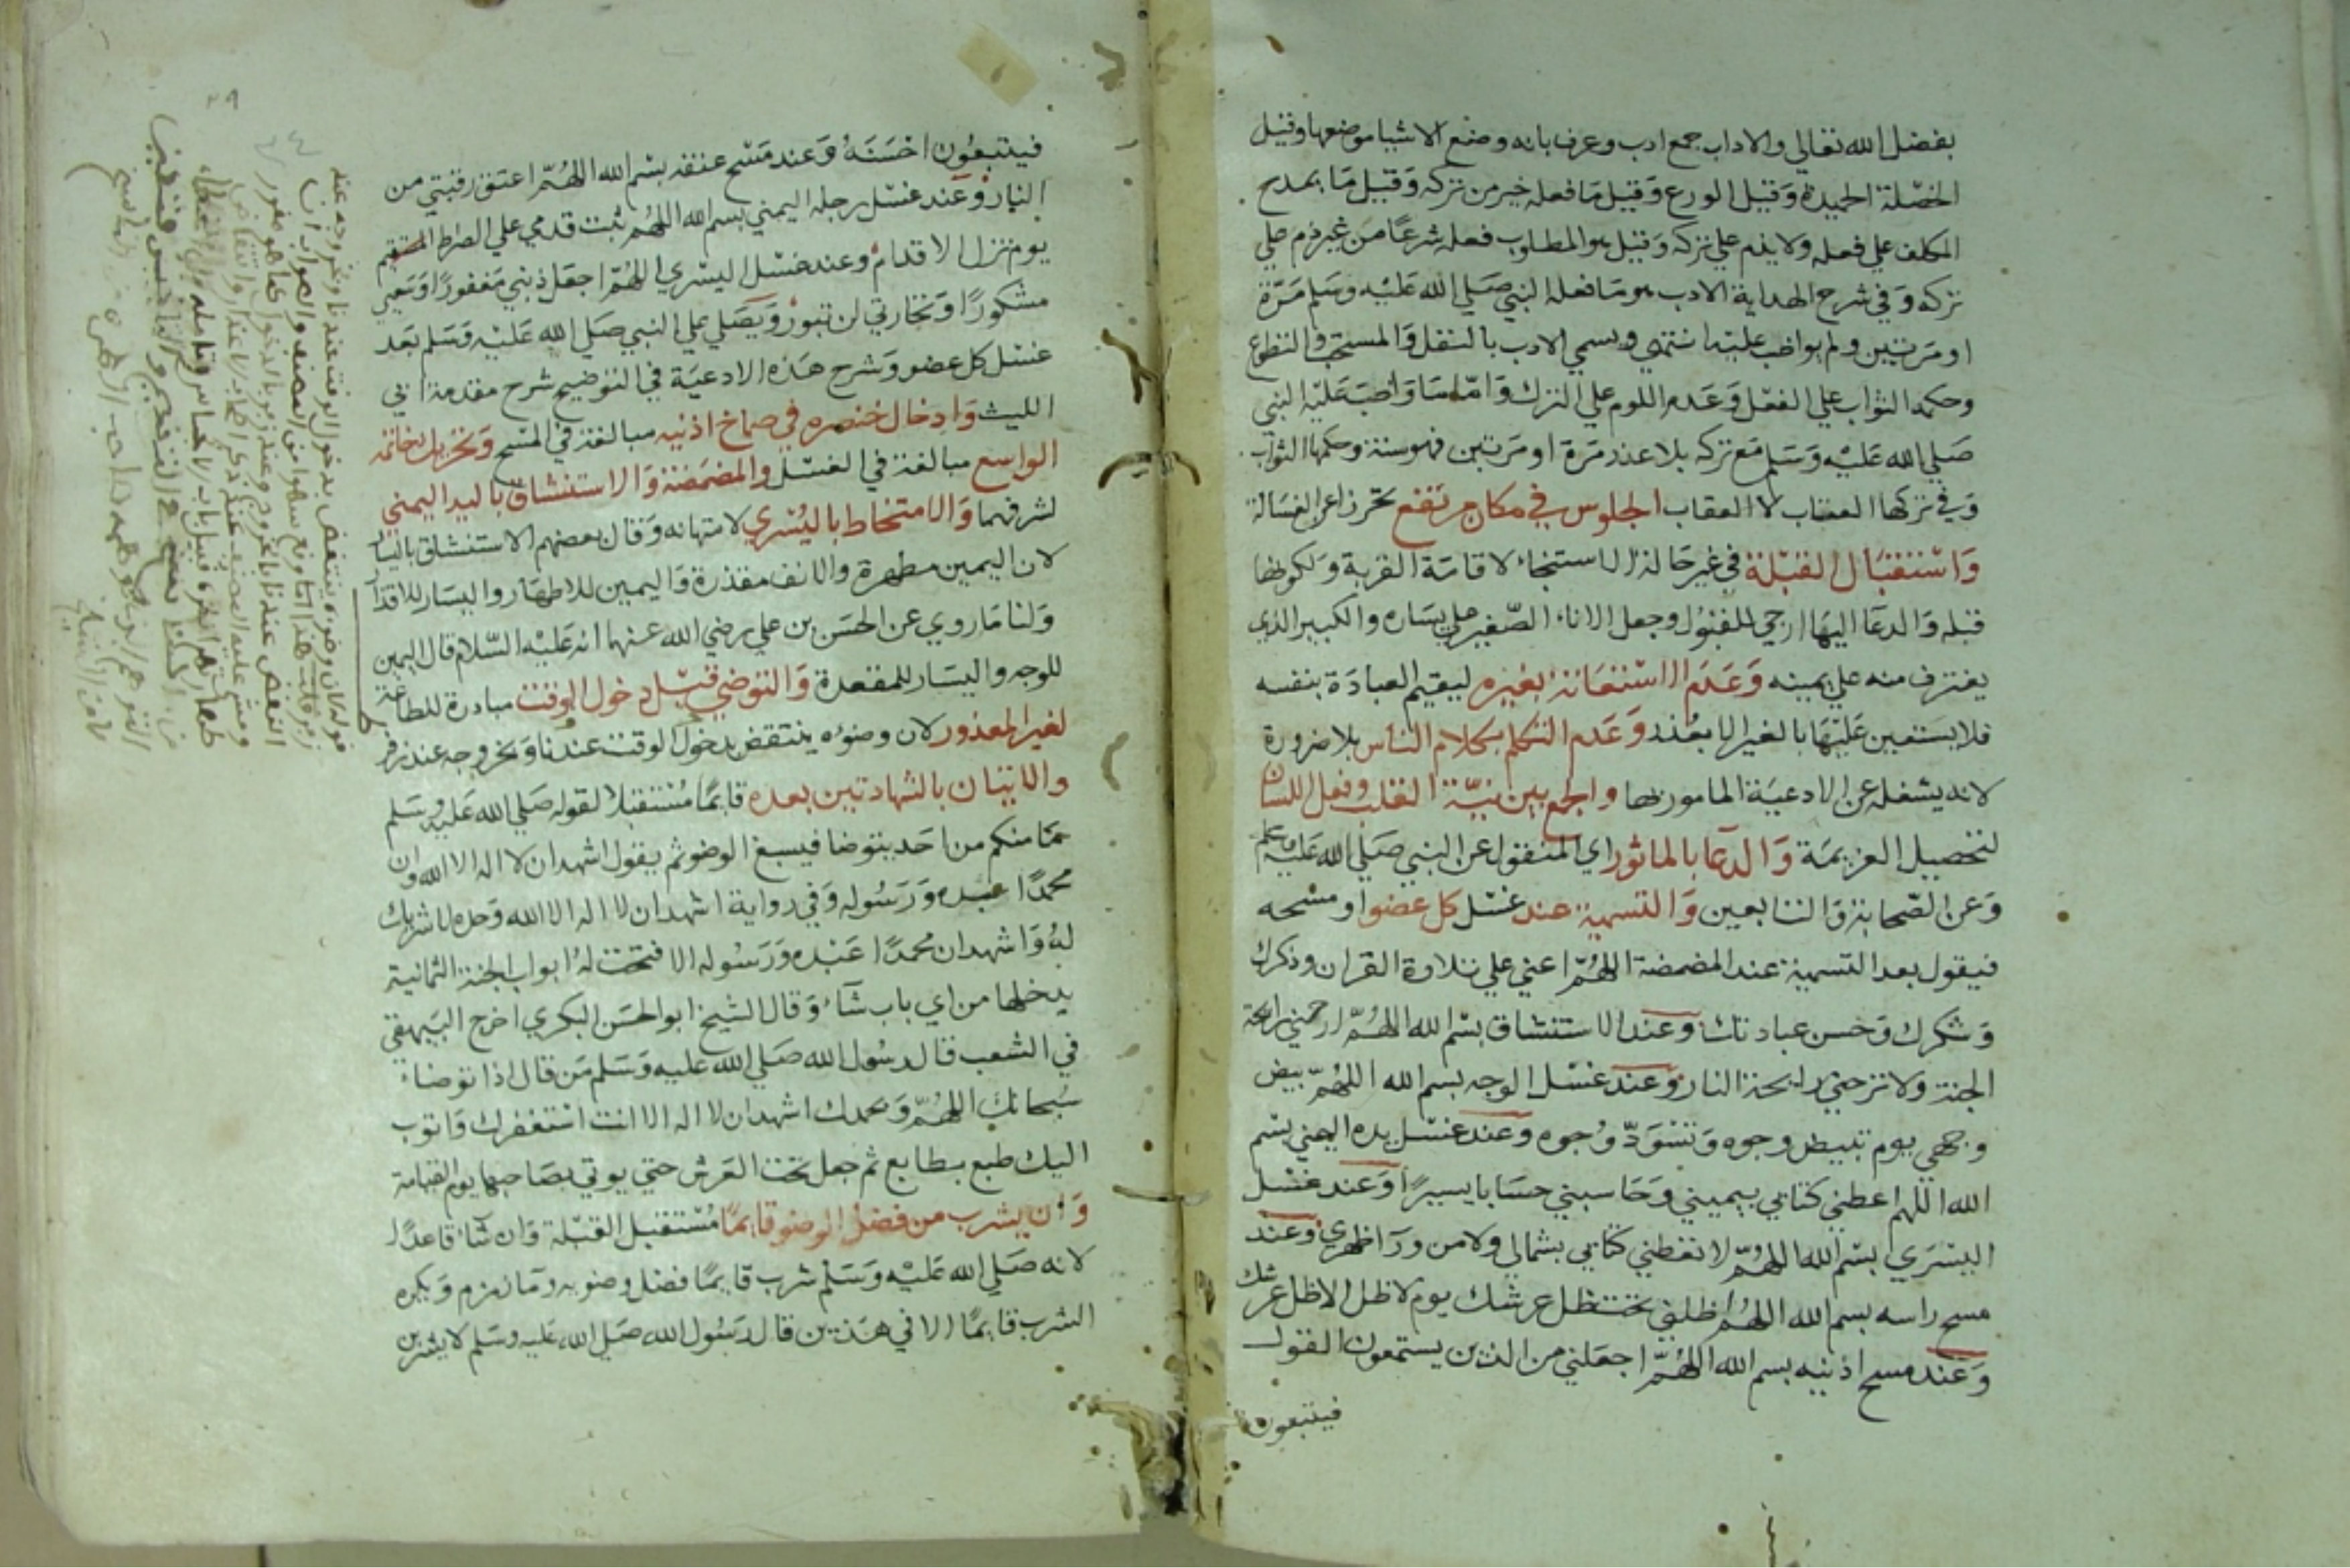 بفضل الله تعالي والاداب جمع ادب وعرف بانه وضع الاشيا موضعها وقيل
الخصلة الحميدة وقيل الورع وقيل ما فعله خير من تركه وقيل ما يمدح
المكلف علي فعله ولا يذم علي تركه وقيل هو المطلوب فعله شرعًا من غير ذم علي
تركه وفي شرح الهداية الادب هو ما فعله النبي صلي الله عليه وسلم مرة
او مرتين ولم يواظب عليه انتهي ويسمي الادب بالنفل والمستحب والتطوع
وحكمه الثواب علي الفعل وعدم اللوم علي الترك واما ما واظب عليه النبي
صلي الله عليه وسلم مع تركه بلا عذر مرة او مرتين فهو سنة وحكمها الثواب
وفي تركها العتاب لا العقاب الجلوس في مكان مرتفع تحرزا عن الغسالة
واستقبال القبلة في غير حالة الاستنجاء لاقامة القربة ولكونها
قبله والدعا اليها ارجي للقبول وجعل الاناء الصغير علي يساره والكبير الذي
يغترف منه علي يمينه وعدم الاستعانة بغيره ليقيم العبادة بنفسه
فلا يستعين عليها بالغير الا بعذر وعدم التكلم بكلام الناس بلا ضرورة
لانه يشغله عن الادعية المامور بها والجمع بين نية القلب وفعل اللسان
لتحصيل العزيمة والدعا بالماثور اي المنقول عن النبي صلي الله عليه وسلم
وعن الصحابة والتابعين والتسمية عند غسل كل عضو او مسحه
فيقول بعد التسمية عند المضمضة اللهم اعني علي تلاوة القران وذكرك
وشكرك وحسن عبادتك وعند الاستنشاق بسم الله اللهم ارحني رايحة
الجنة ولا ترحني رايحة النار وعند غسل الوجه بسم الله اللهم بيض
وجهي يوم تبيض وجوه وتسود وجوه وعند غسل يده اليمني بسم
الله اللهم اعطني كتابي بيميني وحاسبني حسابا يسيرًا وعند غسل
اليسري بسم الله اللهم لا تعطني كتابي بشمالي ولا من ورآ ظهري وعند
مسح راسه بسم الله اللهم اظلني تحت ظل عرشك يوم لا ظل الا ظل عرشك
وعند مسح اذنيه بسم الله اللهم اجعلني من الذين يستمعون القول
فيتبعون
٢٩
فيتبعون احسنه وعند مسح عنقه بسم الله اللهم اعتق رقبتي من
النار وعند غسل رجله اليمني بسم الله اللهم ثبت قدمي علي الصراط المستقيم
يوم تزل الاقدام وعند غسل اليسري اللهم اجعل ذنبي مغفورًا وسعيي
مشكورًا وتجارتي لن تبور ويصلي علي النبي صلي الله عليه وسلم بعد
غسل كل عضو وشرح هذه الادعية في التوضيح شرح مقدمة ابي
الليث وادخال خنصره في صماخ اذنيه مبالغة في المسح وتحريك خاتمه
الواسع مبالغة في الغسل والمضمضة والاستنشاق باليد اليمني
لشرفهما والامتخاط باليسري لامتهانه وقال بعضهم الاستنشاق باليسار
لان اليمين مطهرة والانف مقذرة واليمين للاطهار واليسار للاقذار
ولنا ما روي عن الحسن بن علي رضي الله عنهما انه عليه السلام قال اليمين
للوجه واليسار للمقعدة والتوضي قبل دخول الوقت مبادرة للطاعة
لغير المعذور لان وضوءه ينتقض بدخول الوقت عندنا وبخروجه عند زفر
والاتيان بالشهادتين بعده قايمًا مستقبلا لقوله صلي الله عليه وسلم
ما منكم من احد يتوضا فيسبغ الوضو ثم يقول اشهد ان لا اله الا الله وان
محمدًا عبده ورسوله وفي رواية اشهد ان لا اله الا الله وحده لا شريك
له واشهد ان محمدًا عبده ورسوله الا فتحت له ابواب الجنة الثمانية
يدخلها من اي باب شاء وقال الشيخ ابو الحسن البكري اخرج البيهقي
في الشعب قال رسول الله صلي الله عليه وسلم من قال اذا توضاء
سبحانك اللهم وبحمدك اشهد ان لا اله الا انت استغفرك واتوب
اليك طبع بطابع ثم جعل تحت العرش حتي يوتي بصاحبها يوم القيامة
وان يشرب من فضل الوضو قايمًا مستقبل القبلة وان شاء قاعدًا
لانه صلي الله عليه وسلم شرب قايمًا فضل وضويه وماء زمزم ويكره
الشرب قايمًا الا في هذين قال رسول الله صلي الله عليه وسلم لا يشربن
قوله لان وضوءه ينتقض بدخول الوقت عندنا وبخروجه عند